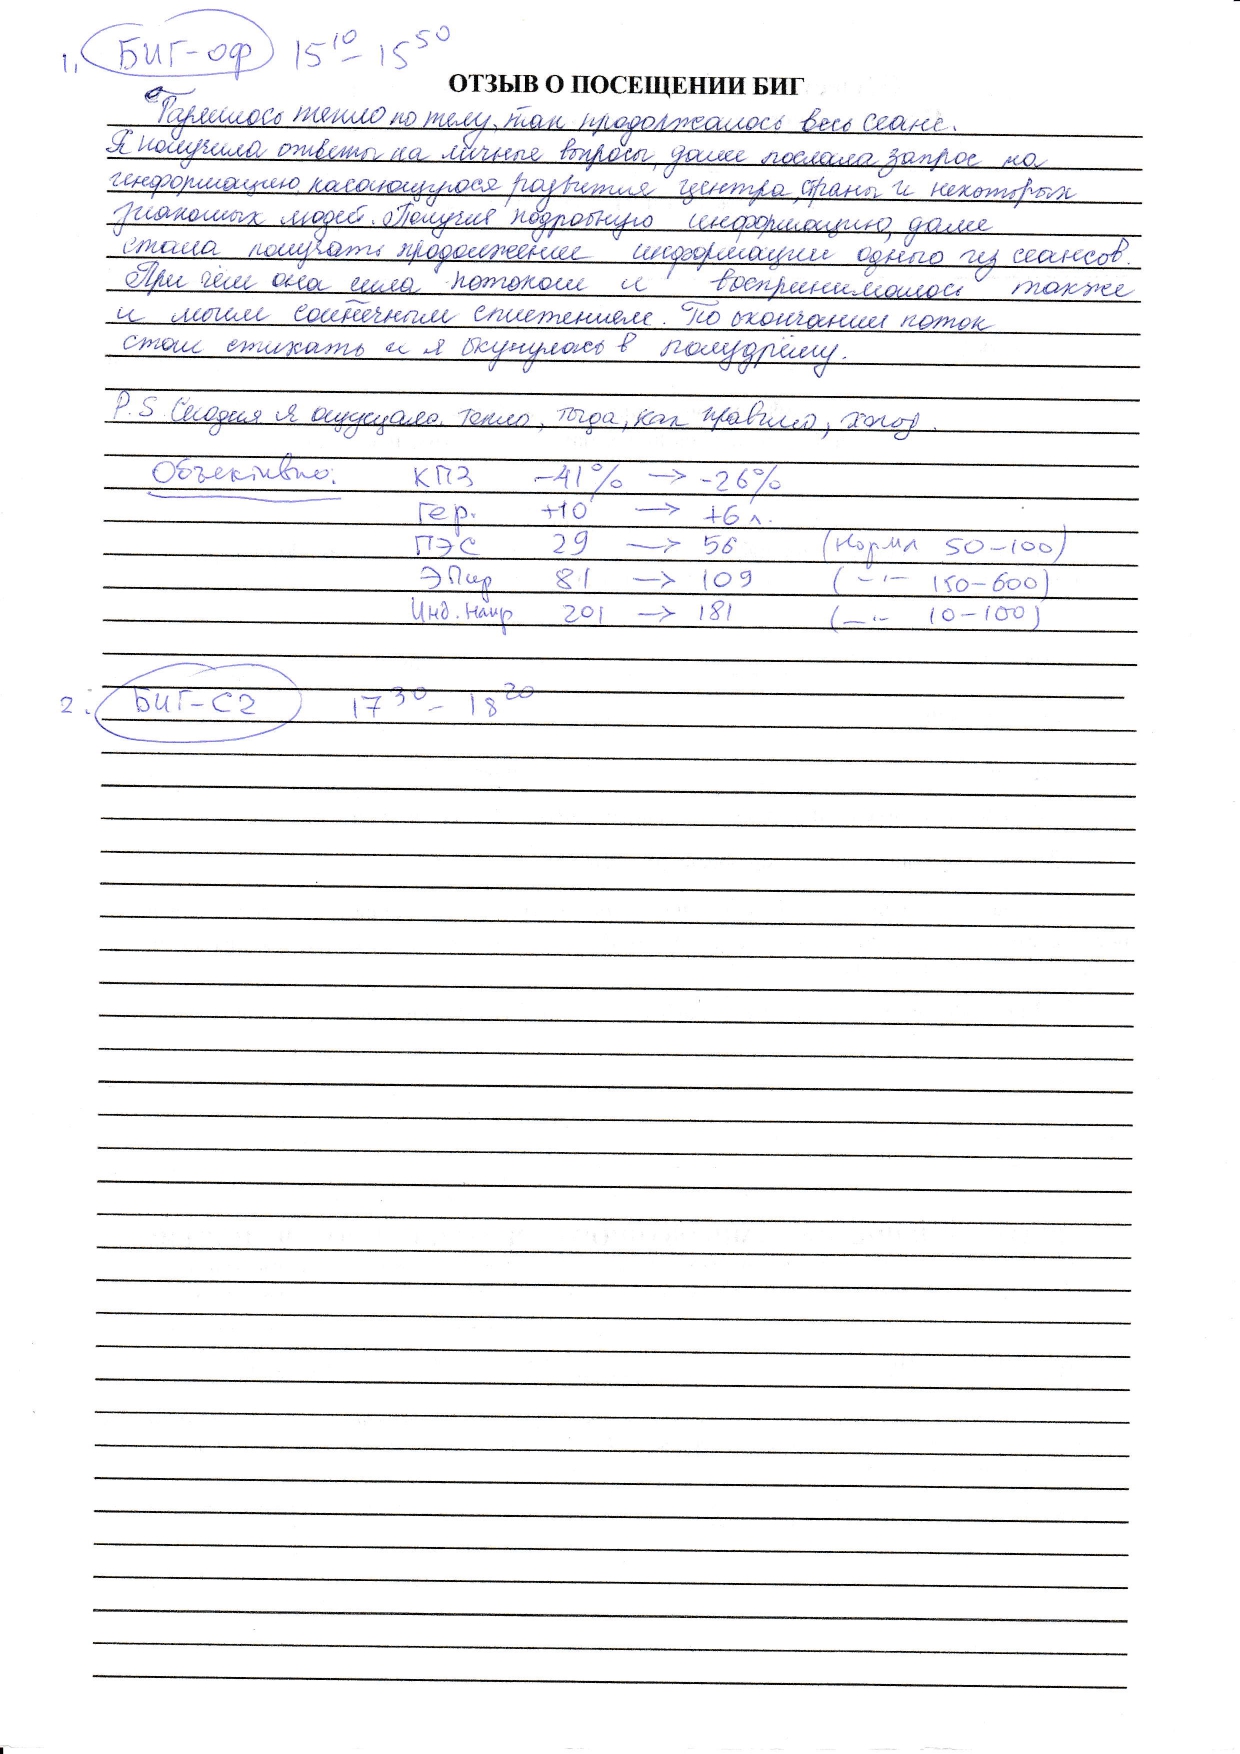 1. БИГ-оф 15¹⁰ – 15⁵⁰
ОТЗЫВ О ПОСЕЩЕНИИ БИГ
тепло по телу, так продолжалось весь сеанс.
Я получила ответы на личные вопросы, далее послала запрос на
информацию, касающуюся развития центра, страны и некоторых
знакомых людей. Получив подробную информацию, далее
стала получать продолжение информации одного из сеансов.
При чём она шла потоком и воспринималось также
и моим солнечным сплетением. По окончании поток
стал стихать и я окунулась в полудрёму.
P.S. Сегодня я ощущала тепло, тогда, как правило, холод.
Объективно: КПЗ -41% → -26%
Гер. +10 → +6 л.
ПЭС 29 → 56 (норма 50-100)
81 → 109 (–"– 150-600)
Инд. напр 201 → 181 (–"– 10-100)
2. БИГ-С2 17³⁰ – 18²⁰